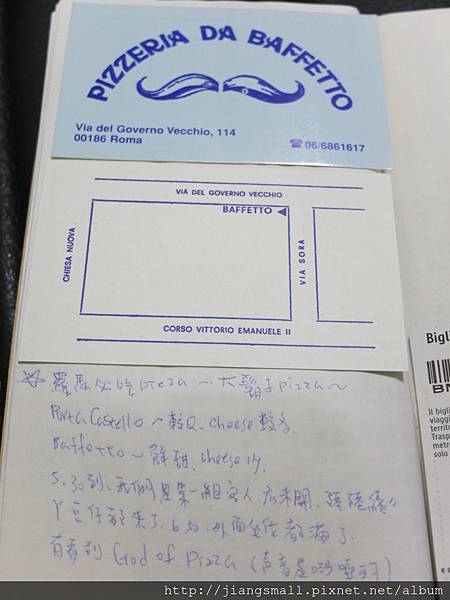 PIZZERIA DA BAFFETTO
Via del Governo Vecchio, 114
00186 Roma
☎ 06/6861617
VIA DEL GOVERNO VECCHIO
BAFFETTO ◀
CHIESA NUOVA
VIA SORA
CORSO VITTORIO EMANUELE II
☆ 羅馬必吃pizza～大鬍子pizza～
Porta Castello～較Q、cheese較多
Baffetto～鮮甜、cheese少
5:30到,我們是第一組客人 店未開,陸陸續續
才都來了,6:30,外面坐位都滿了
有看到 God of Pizza (声音是
Bigli
BN
Il bigl
viaggi
territo
Trasp
metro
solo
http://jiangsmall.pixnet.net/album